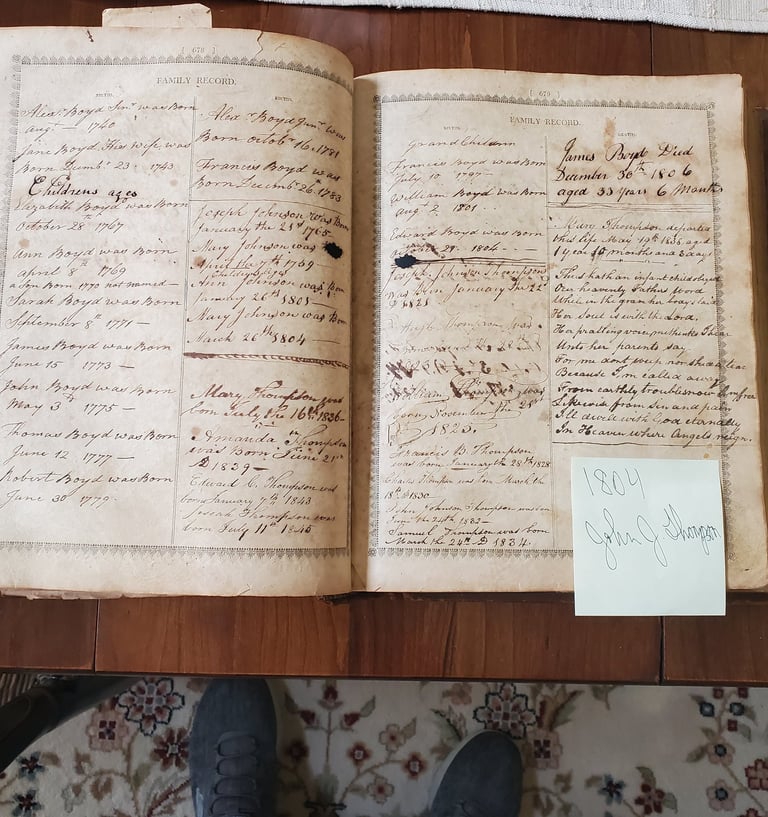 [ 678 ]
FAMILY RECORD.
BIRTHS.
Alexr Boyd Senr was Born
aug — 1740
Jane Boyd His wife was
Born Decmbr 23. 1743
Childrens ages
Elizabeth Boyd was Born
October 28th 1767
Ann Boyd was Born
april 8th 1769
a Son Born 1770 not named—
Sarah Boyd was Born
September 8th 1771—
James Boyd was Born
June 15 1773—
John Boyd was Born
May 3d 1775—
Thomas Boyd was Born
June 12 1777—
Robert Boyd was Born
June 30 1779.
BIRTHS.
Alexr Boyd Junr was
Born Octobr 16. 1781
Frances Boyd was
Born Decmbr 26. 1783
Joseph Johnson was Born
January the 21st 1765
Mary Johnson was
April the 7th 1769—
Childrens ages
Ann Johnson was Born
January 26th 1801—
Mary Johnson was Born
March 26th 1804—
Mary Thompson was
born July the 16th 1836
Amanda Thompson
was Born June 21st
D 1839—
Edward C. Thompson was
born January 7th 1843
Joseph Thompson was
born July 11th 1845
[ 679 ]
FAMILY RECORD.
BIRTHS.
Grand Children
Francis Boyd was Born
July 10th 1797—
William Boyd was Born
Aug 2. 1801
Edward Boyd was Born
29. 1804—
Joseph Johnson Thompson
was Born January the 22d
D 1821
Hugh Thompson was
William Thompson was
Born November the 25th
1825.
Francis B Thompson
was born January the 28th 1828
Charles Thompson was born March the
18th D 1830
John Johnson Thompson was born
June the 24th 1832—
Samuel Thompson was born
March the 24th D 1834.
DEATHS.
James Boyd Died
December 30th 1806
aged 33 Years 6 Months
Mary Thompson departed
this life May 19th 1838 aged
1 year 10 months and 3 days
Thus hath an infant child obeyed
Our heavenly Fathers Word
While in the grave her body's laid
Her Soul is with the Lord,
Her prattling voice methinks I hear
Unto her parents say
For me dont weep nor shed a tear
Because I'm called away
From earthly troubles now I'm free
Likewise from Sin and pain
I'll dwell with God eternally
In Heaven where Angels reign.
1804
John J Thompson